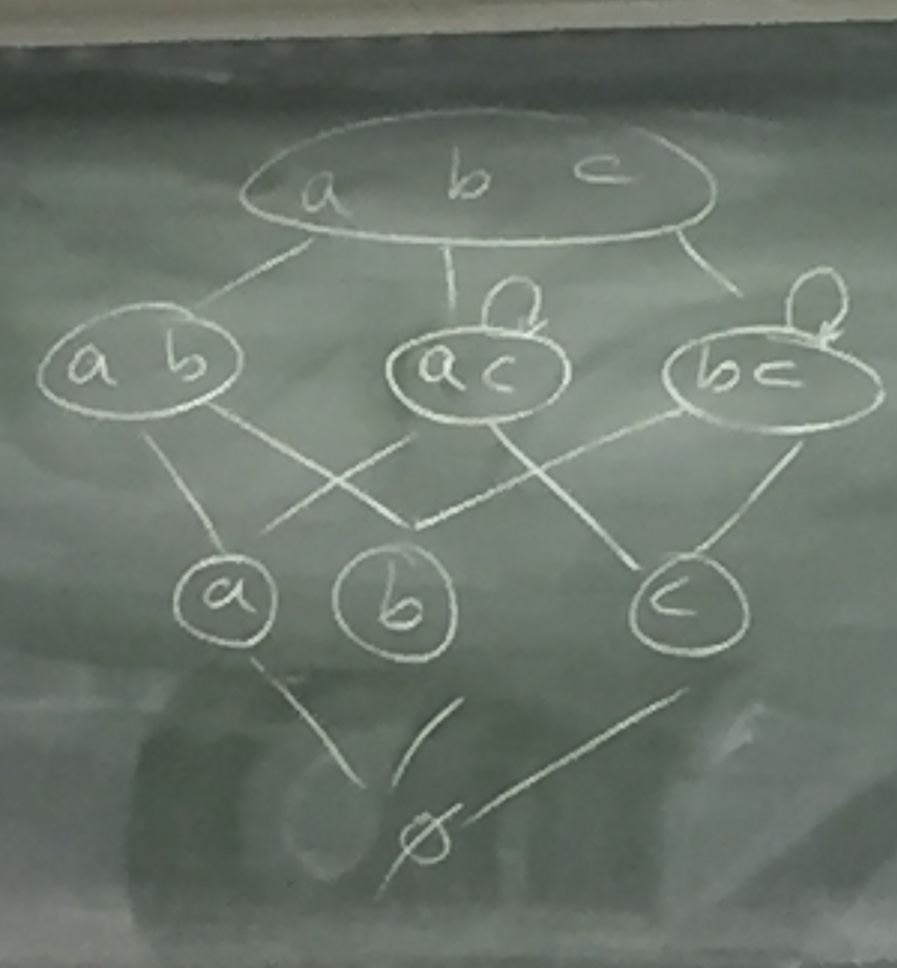 a b c
a b ac bc
a b c
∅